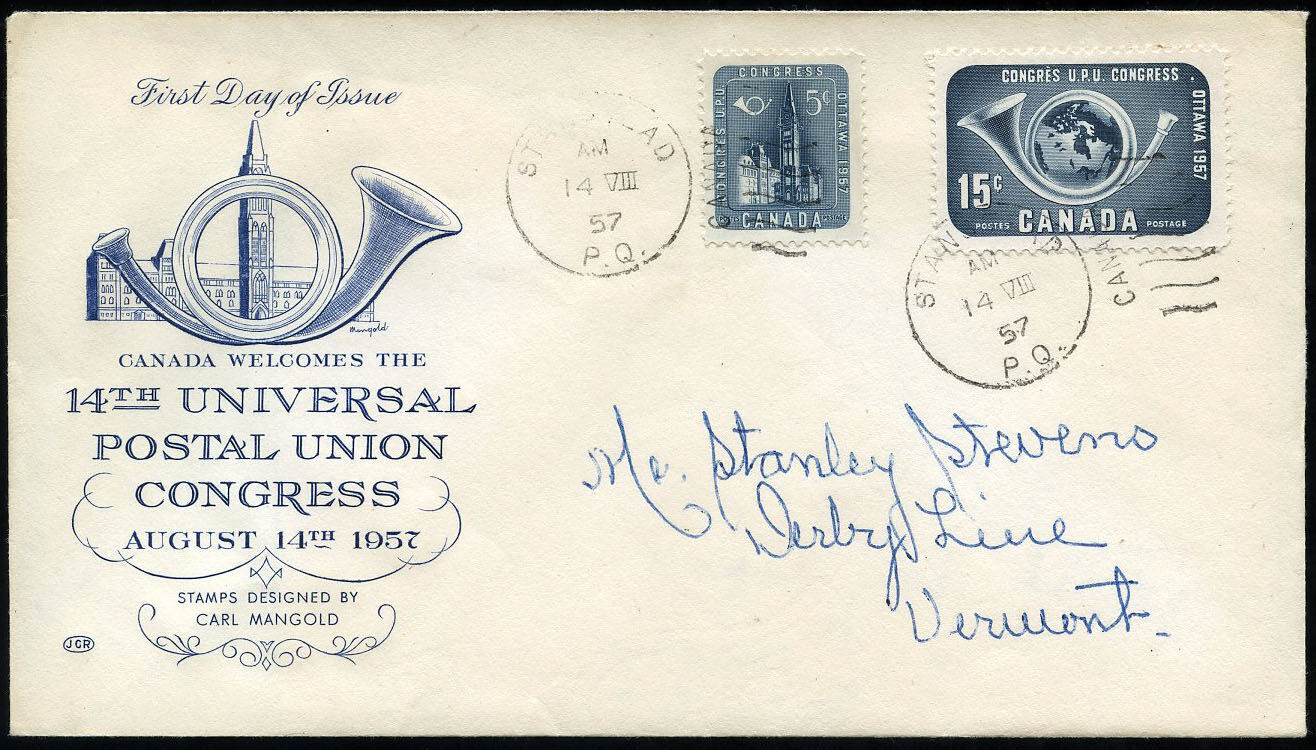 First Day of Issue
Mangold
CANADA WELCOMES THE
14TH UNIVERSAL
POSTAL UNION
CONGRESS
AUGUST 14TH 1957
STAMPS DESIGNED BY
CARL MANGOLD
JCR
AM
14 VIII
57
P.Q.
CONGRESS
CONGRÈS U.P.U.
5¢
OTTAWA 1957
CANADA
POSTAGE
CANADA
CONGRÈS U.P.U. CONGRESS
OTTAWA 1957
15¢
POSTES CANADA POSTAGE
AM
14 VIII
57
P.Q.
Mr. Stanley Stevens
Derby Line
Vermont.